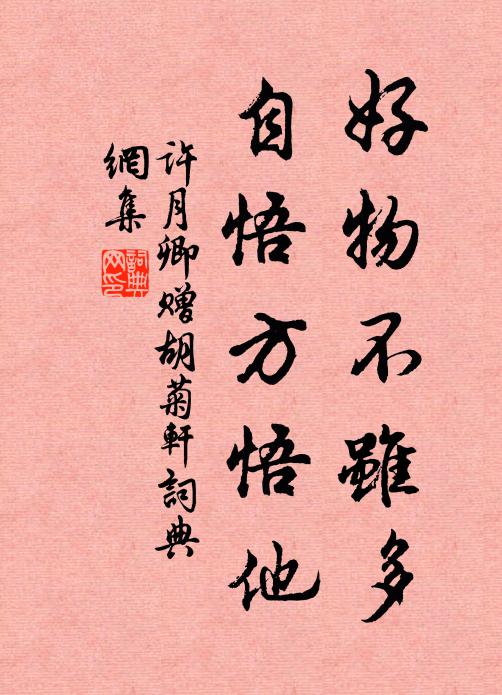 好物不雖多
自悟方悟他
許月卿贈胡菊軒詞典
網集
詞典
网印